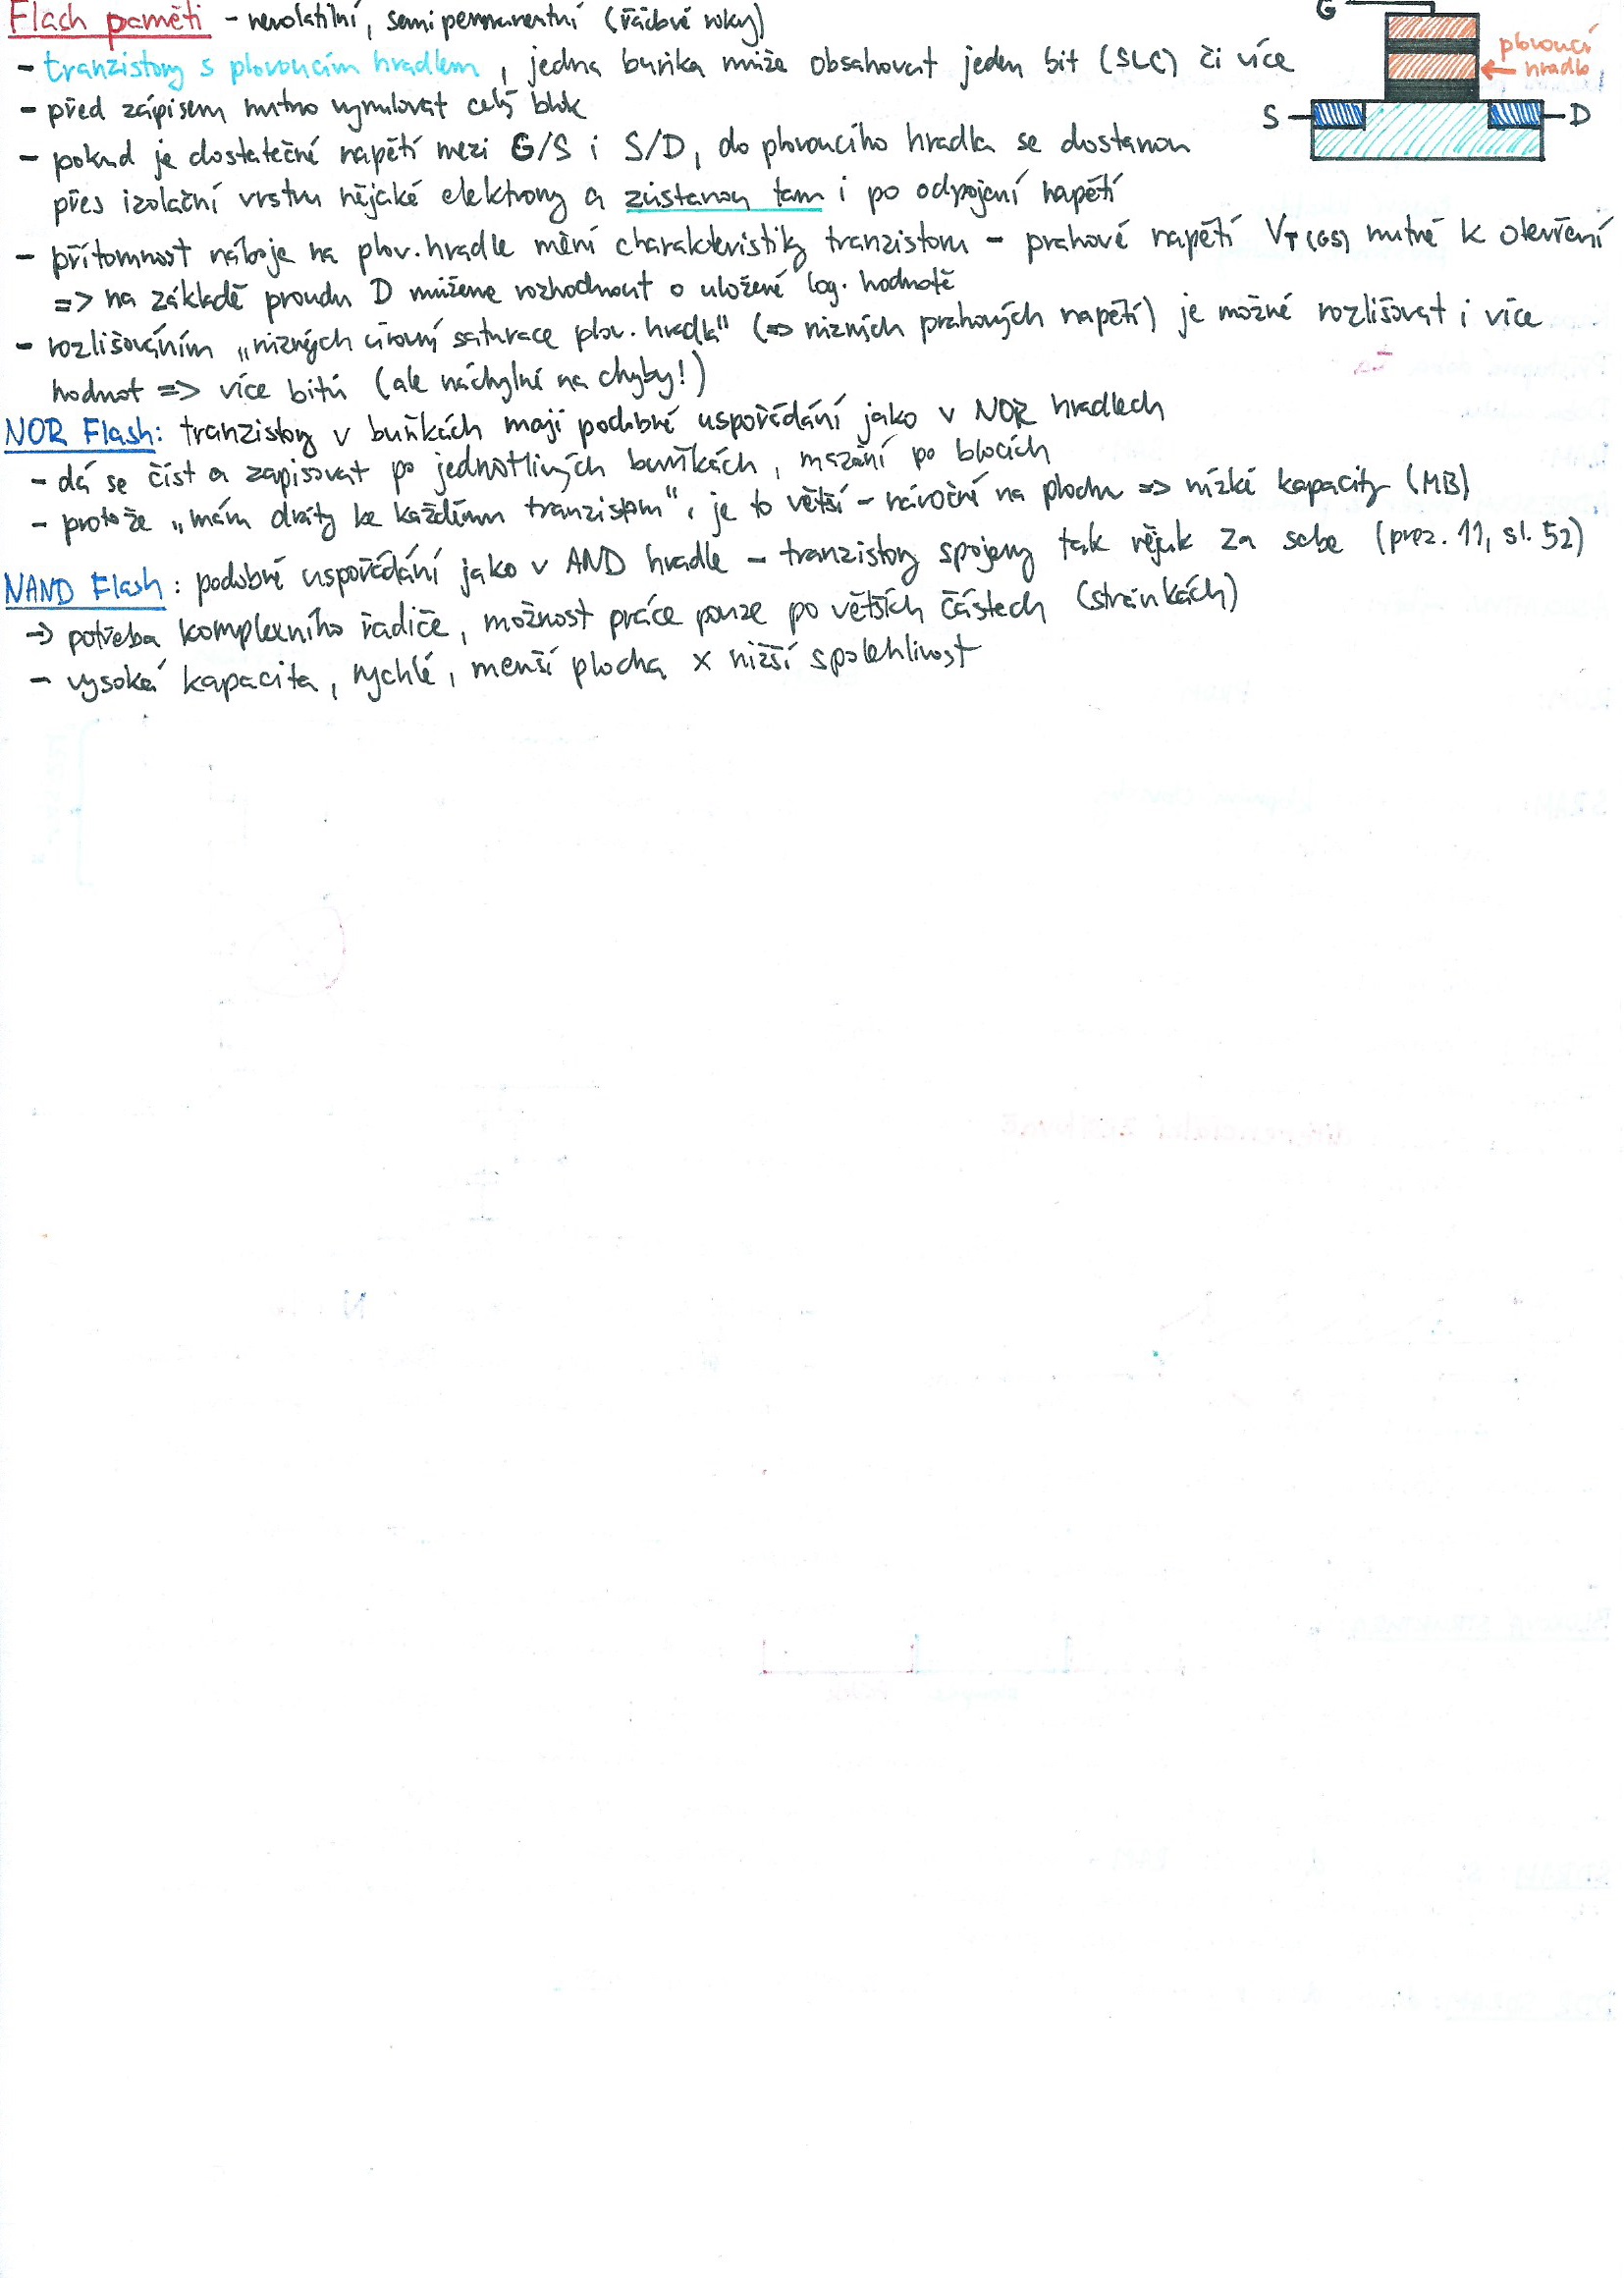 Flash paměti - nevolatilní, semipermanentní (řádově roky)
- tranzistory s plovoucím hradlem, jedna buňka může obsahovat jeden bit (SLC) či více
- před zápisem nutno vynulovat celý blok
- pokud je dostatečné napětí mezi G/S i S/D, do plovoucího hradla se dostanou
přes izolační vrstvu nějaké elektrony a zůstanou tam i po odpojení napětí
- přítomnost náboje na plov. hradle mění charakteristiky tranzistoru - prahové napětí VT(GS) nutné k otevření
=> na základě proudu D můžeme rozhodnout o uložené log. hodnotě
- rozlišováním „různých úrovní saturace plov. hradla" (=> různých prahových napětí) je možné rozlišovat i více
hodnot => více bitů (ale náchylné na chyby!)
NOR Flash: tranzistory v buňkách mají podobné uspořádání jako v NOR hradlech
- dá se číst a zapisovat po jednotlivých buňkách, mazání po blocích
- protože „mám dráty ke každému tranzistoru", je to větší - náročné na plochu => nízké kapacity (MB)
NAND Flash: podobné uspořádání jako v AND hradle - tranzistory spojeny tak nějak za sebe (prez. 11, sl. 52)
-> potřeba komplexního řadiče, možnost práce pouze po větších částech (stránkách)
- vysoká kapacita, rychlé, menší plocha x nižší spolehlivost
G
plovoucí
hradlo
S
D